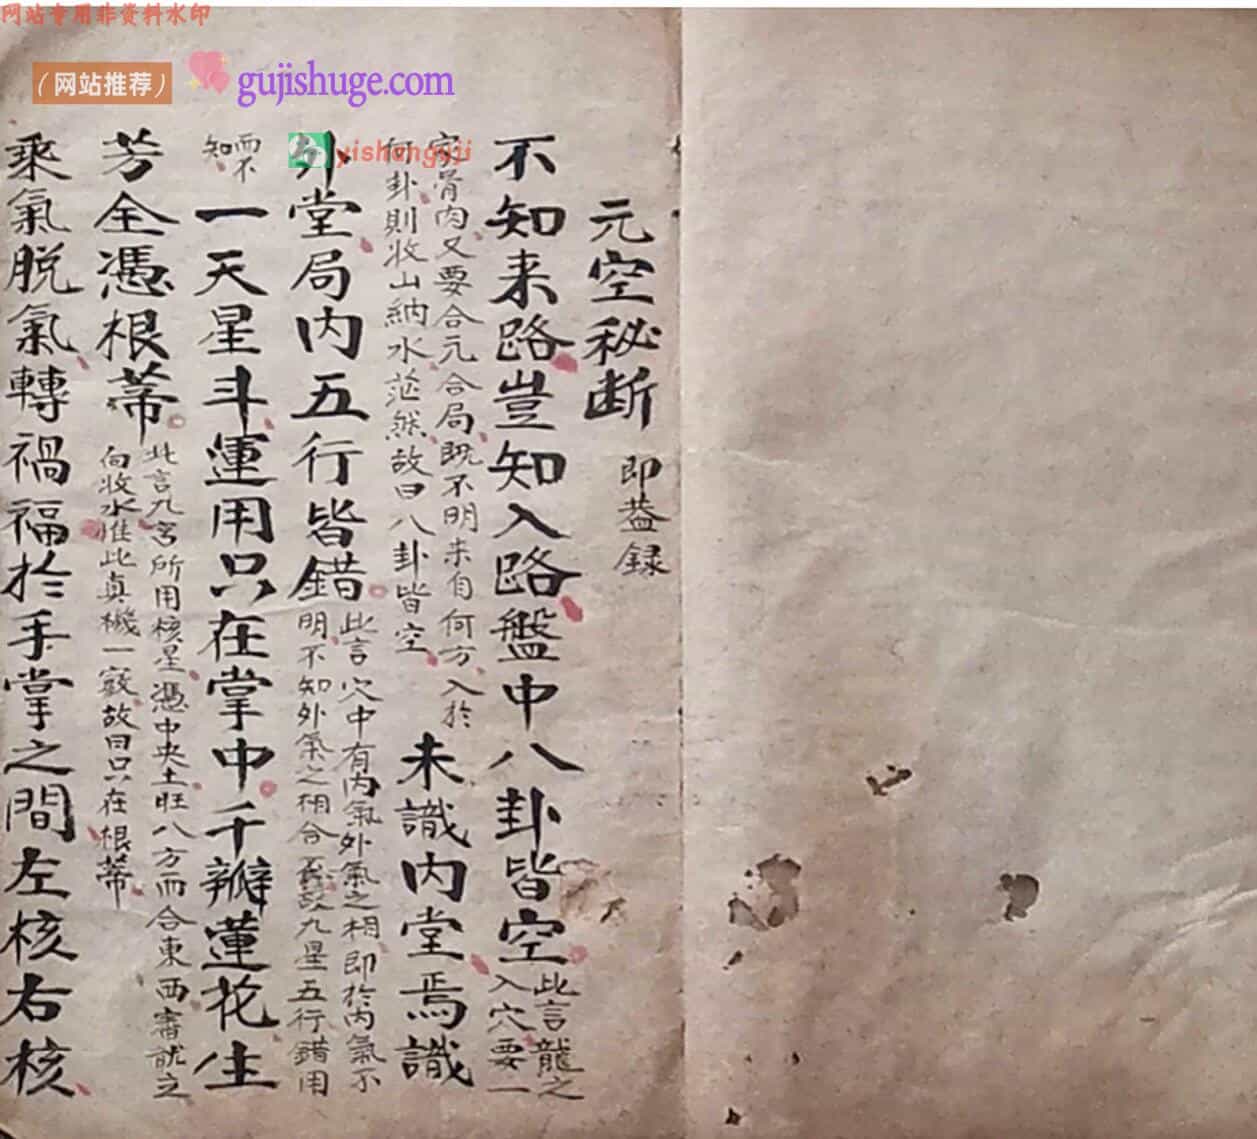 网站专用非资料水印
(网站推荐)
gujishuge.com
yishanguji
元空秘断 即葢録
不知来路豈知入路盤中八卦皆空
此言龍之
入穴要一
家骨肉又要合元合局既不明来自何方入於
何卦則收山納水茫然故曰八卦皆空
未識内堂焉識
外堂局内五行皆錯
此言穴中有内氣外氣之相即於内氣不
明不知外氣之相合故九星五行錯用
而不
知
一天星斗運用只在掌中千瓣蓮花生
芳全憑根蒂
此言九宮所用核星憑中央土旺八方而合東西審之
向收水惟此真機一竅故曰只在根蒂
乘氣脱氣轉禍福於手掌之間左核右核